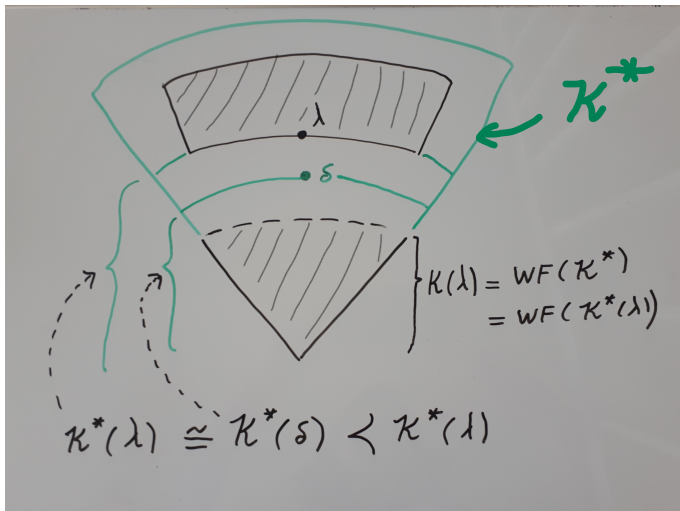 𝒦*
λ
δ
K(λ) = WF(𝒦*)
= WF(𝒦*(λ))
𝒦*(λ) ≅ 𝒦*(δ) ≺ 𝒦*(λ)